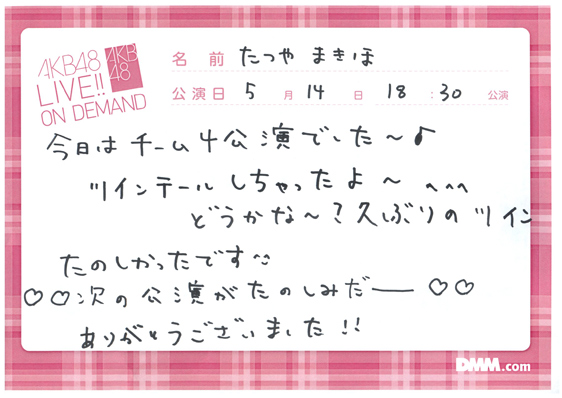 AKB48
LIVE!!
ON DEMAND
AKB
48
名前 たつや まきほ
公演日 5月 14日 18:30 公演
今日はチーム4公演でした〜♪
ツインテールしちゃったよ〜 ^^^
どうかな〜?久ぶりのツイン
たのしかったです
♡♡次の公演がたのしみだー ♡♡
ありがとうございました!!
DMM.com